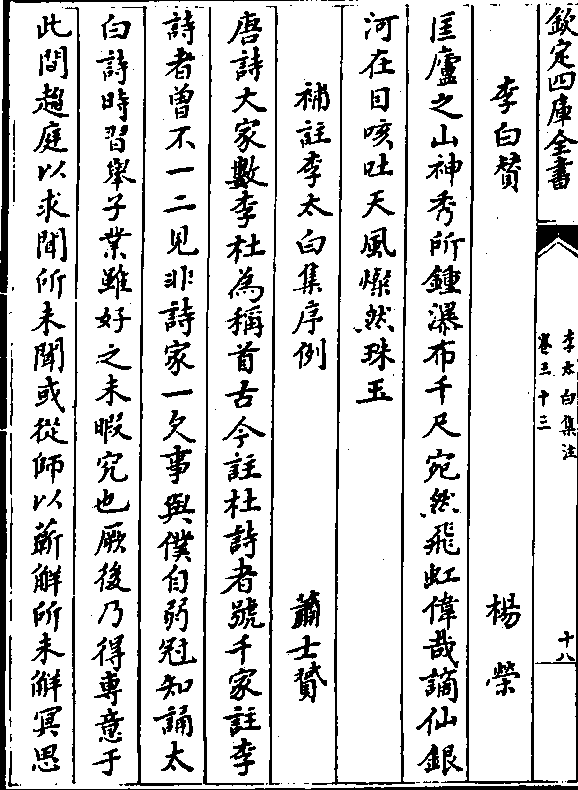 欽定四庫全書
李太白集注
卷三十三
十八
李白贊 楊榮
匡廬之山神秀所鍾瀑布千尺宛然飛虹偉哉謫仙銀
河在目咳吐天風燦然珠玉
補註李太白集序例 蕭士贇
唐詩大家數李杜為稱首古今註杜詩者號千家註李
詩者曾不一二見非詩家一欠事與僕自弱冠知誦太
白詩時習舉子業雖好之未暇究也厥後乃得專意于
此間趨庭以求聞所未聞或從師以蘄解所未解冥思